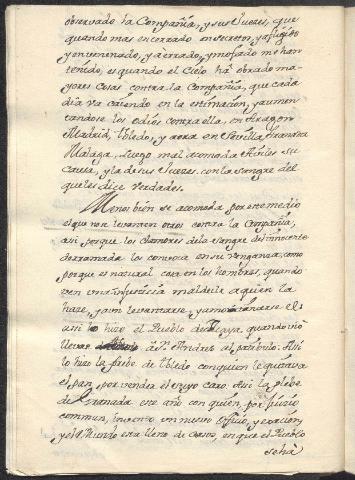 observado la Compañia, y sus Jueces, que
quando mas encerrado en secreto, y afligido
y envenenado, y aerrado, y mofado me han
tenido, es quando el Cielo ha obrado ma
yores cosas contra la Compañia, que cada
dia va caiendo en la estimacion, y aumen
tandose los odios contra ella, en Aragon
Madrid, Toledo, y aora en Sevilla, Granada
Malaga. Luego mal acomoda Aviles su
causa, y la de sus Jueces con la sangre del
que les dice verdades.
Menos bien se acomoda por este medio
el que no se levanten otros contra la Compañia,
asi porque los clamores de la sangre del inocente
derramada los convoca en su venganza, como
porque es natural cosa en los hombres, quando
ven una injusticia maldecir a quien la
hace, y aun levantarse, y amotinarse
asi lo hizo el Pueblo de quando vió
llevar de Dn. Andres al patibulo. Asi
lo hizo la plebe de Toledo con quien le quitava
el pan, por vender el suyo caro. Asi la plebe
de Granada este año con quien, por juicio
comun, invento un nuevo y
y el Mundo esta lleno de casos, en que el Pueblo
se ha